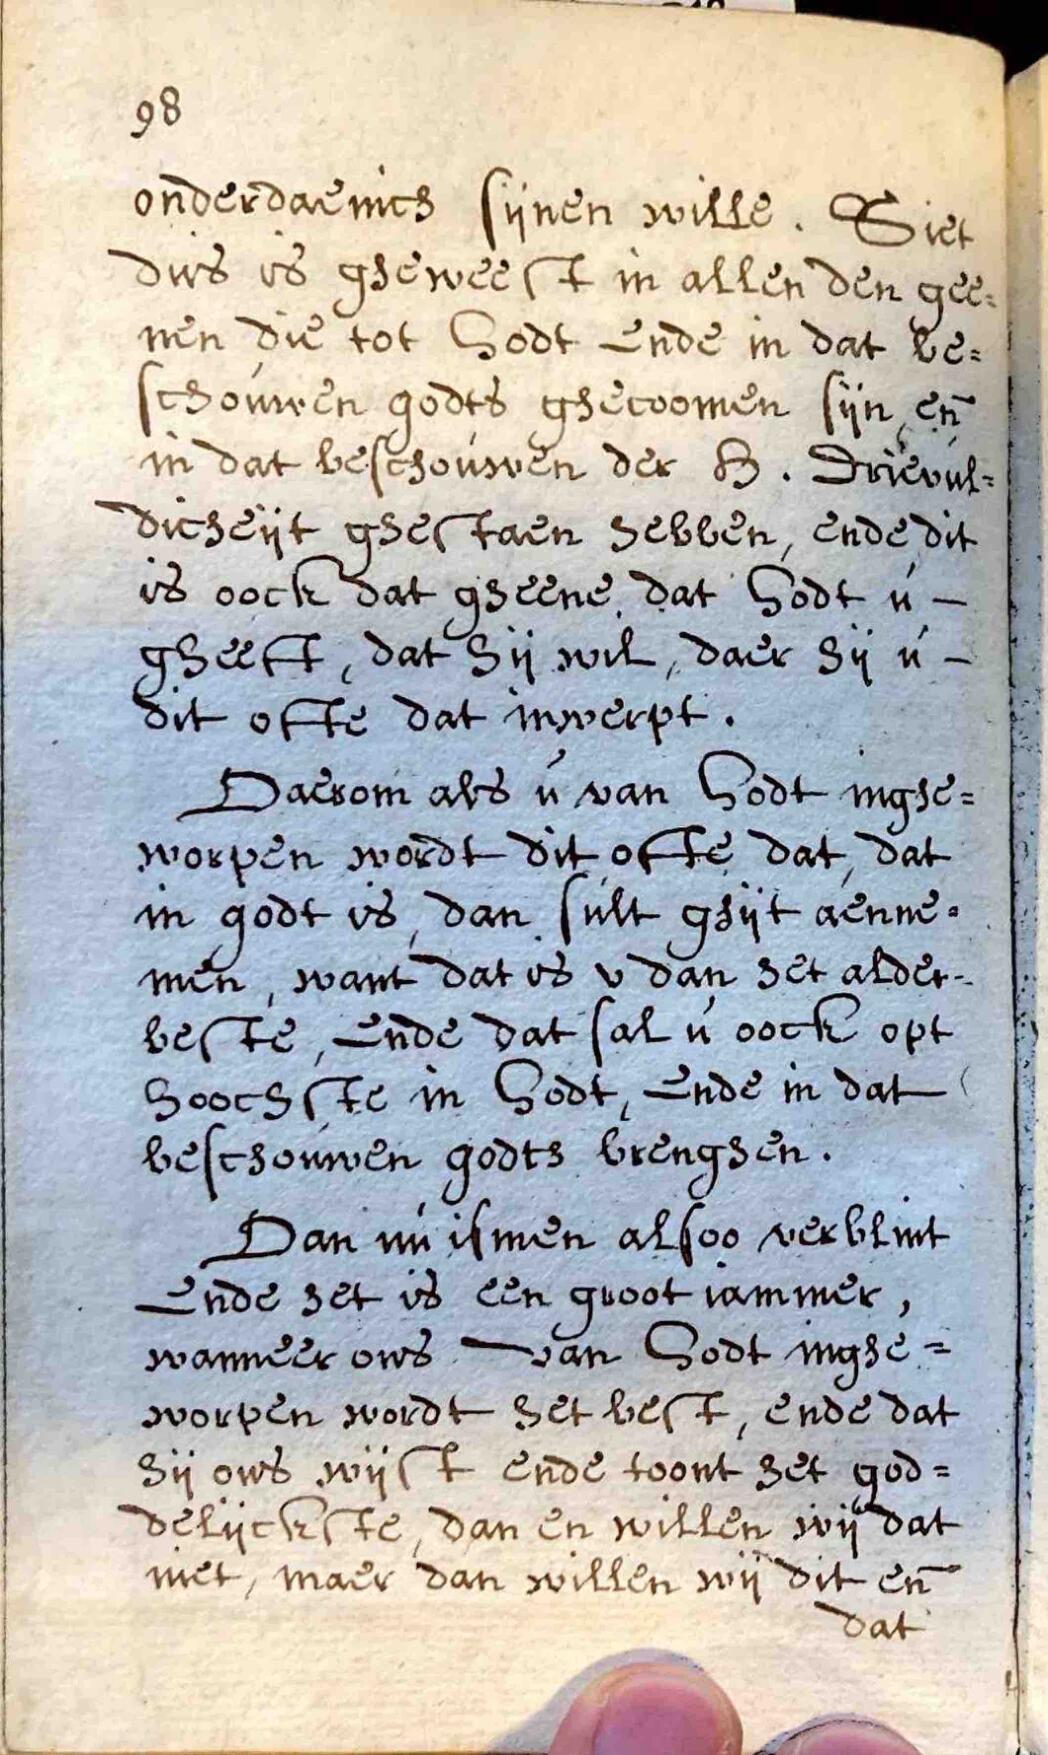 98
onderdaenich sijnen wille. Siet
dus is gheweest in allen den gee=
nen die tot Godt ende in dat be=
schouwen godts ghecoomen sijn, en̄
in dat beschouwen der H. Drievul=
dicheijt ghestaen hebben, ende dit
is oock dat gheene dat Godt u -
gheeft, dat hij wil, daer hij u -
dit ofte dat inwerpt.
Daerom als u van Godt inghe=
worpen wordt dit ofte dat, dat
in godt is, dan sult ghijt aenne=
men, want dat is v dan het alder-
beste, ende dat sal u oock opt
hoochste in Godt, ende in dat
beschouwen godts brenghen.
Dan nu ismen alsoo verblint
ende het is een groot iammer,
wanneer ons van Godt inghe=
worpen wordt het best, ende dat
hij ons wijst ende toont het god=
delijckste, dan en willen wij dat
niet, maer dan willen wij dit en̄
dat